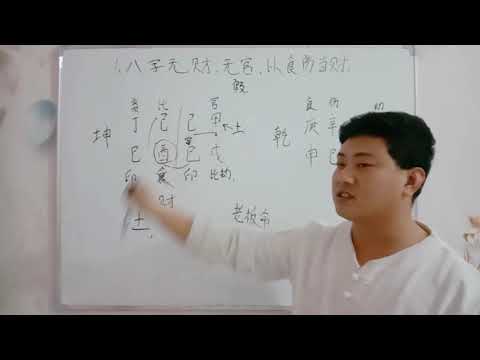 1.八字无财、无官、以食伤当财
假
枭 比 官 食 伤
坤 丁 己 己 甲 土 乾 庚 辛
巳 酉 巳 戌 申 巳
印 食 印 比劫
财
土 老板命